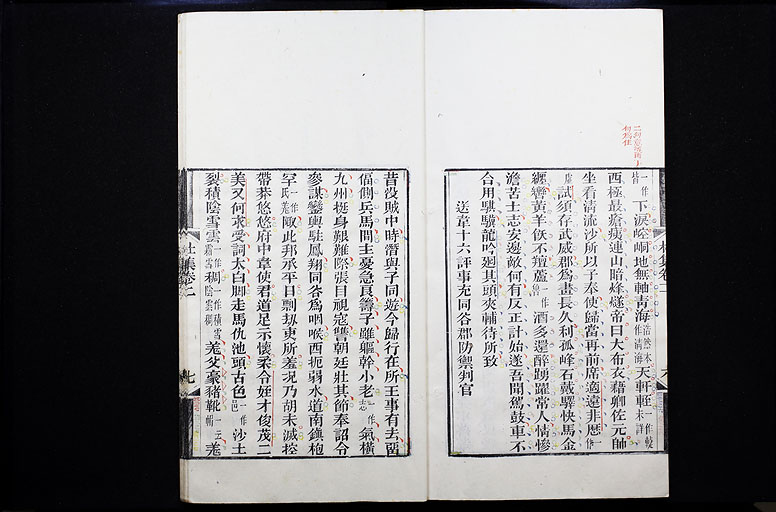 一作皆下淚崆峒地無軸青海浩然本作清海天軒輊一作較未詳
西極最瘡痍連山暗烽燧帝曰大布衣藉卿佐元帥
坐看清流沙所以子奉使歸當再前席適遠非歷一作
虛試須存武威郡爲畫長久利孤峰石戴驛快馬金
纏轡黃羊飫不羶蘆一作魯酒多還醉踴躍常人情慘
澹苦士志安邊敵何有反正計始遂吾聞駕鼓車不
合用騏驥龍吟迴其頭夾輔待所致
送韋十六評事充同谷郡防禦判官
昔没賊中時潛與子同遊今歸行在所王事有去留
偪側兵馬間主憂急良籌子雖軀幹小老一作志氣橫
九州挺身艱難際張目視寇讐朝廷壯其節奉詔令
參謀鑾輿駐鳳翔同谷爲咽喉西扼弱水道南鎮枹
罕一作氐羌陬此邦承平日剽刼吏所羞況乃胡未滅控
帶莽悠悠府中韋使君道足示懷柔令姪才俊茂二
美又何求受詞太白脚走馬仇池頭古色一作邑沙土
裂積陰雪雲稠羌父豪豬靴羌
杜集卷二
七